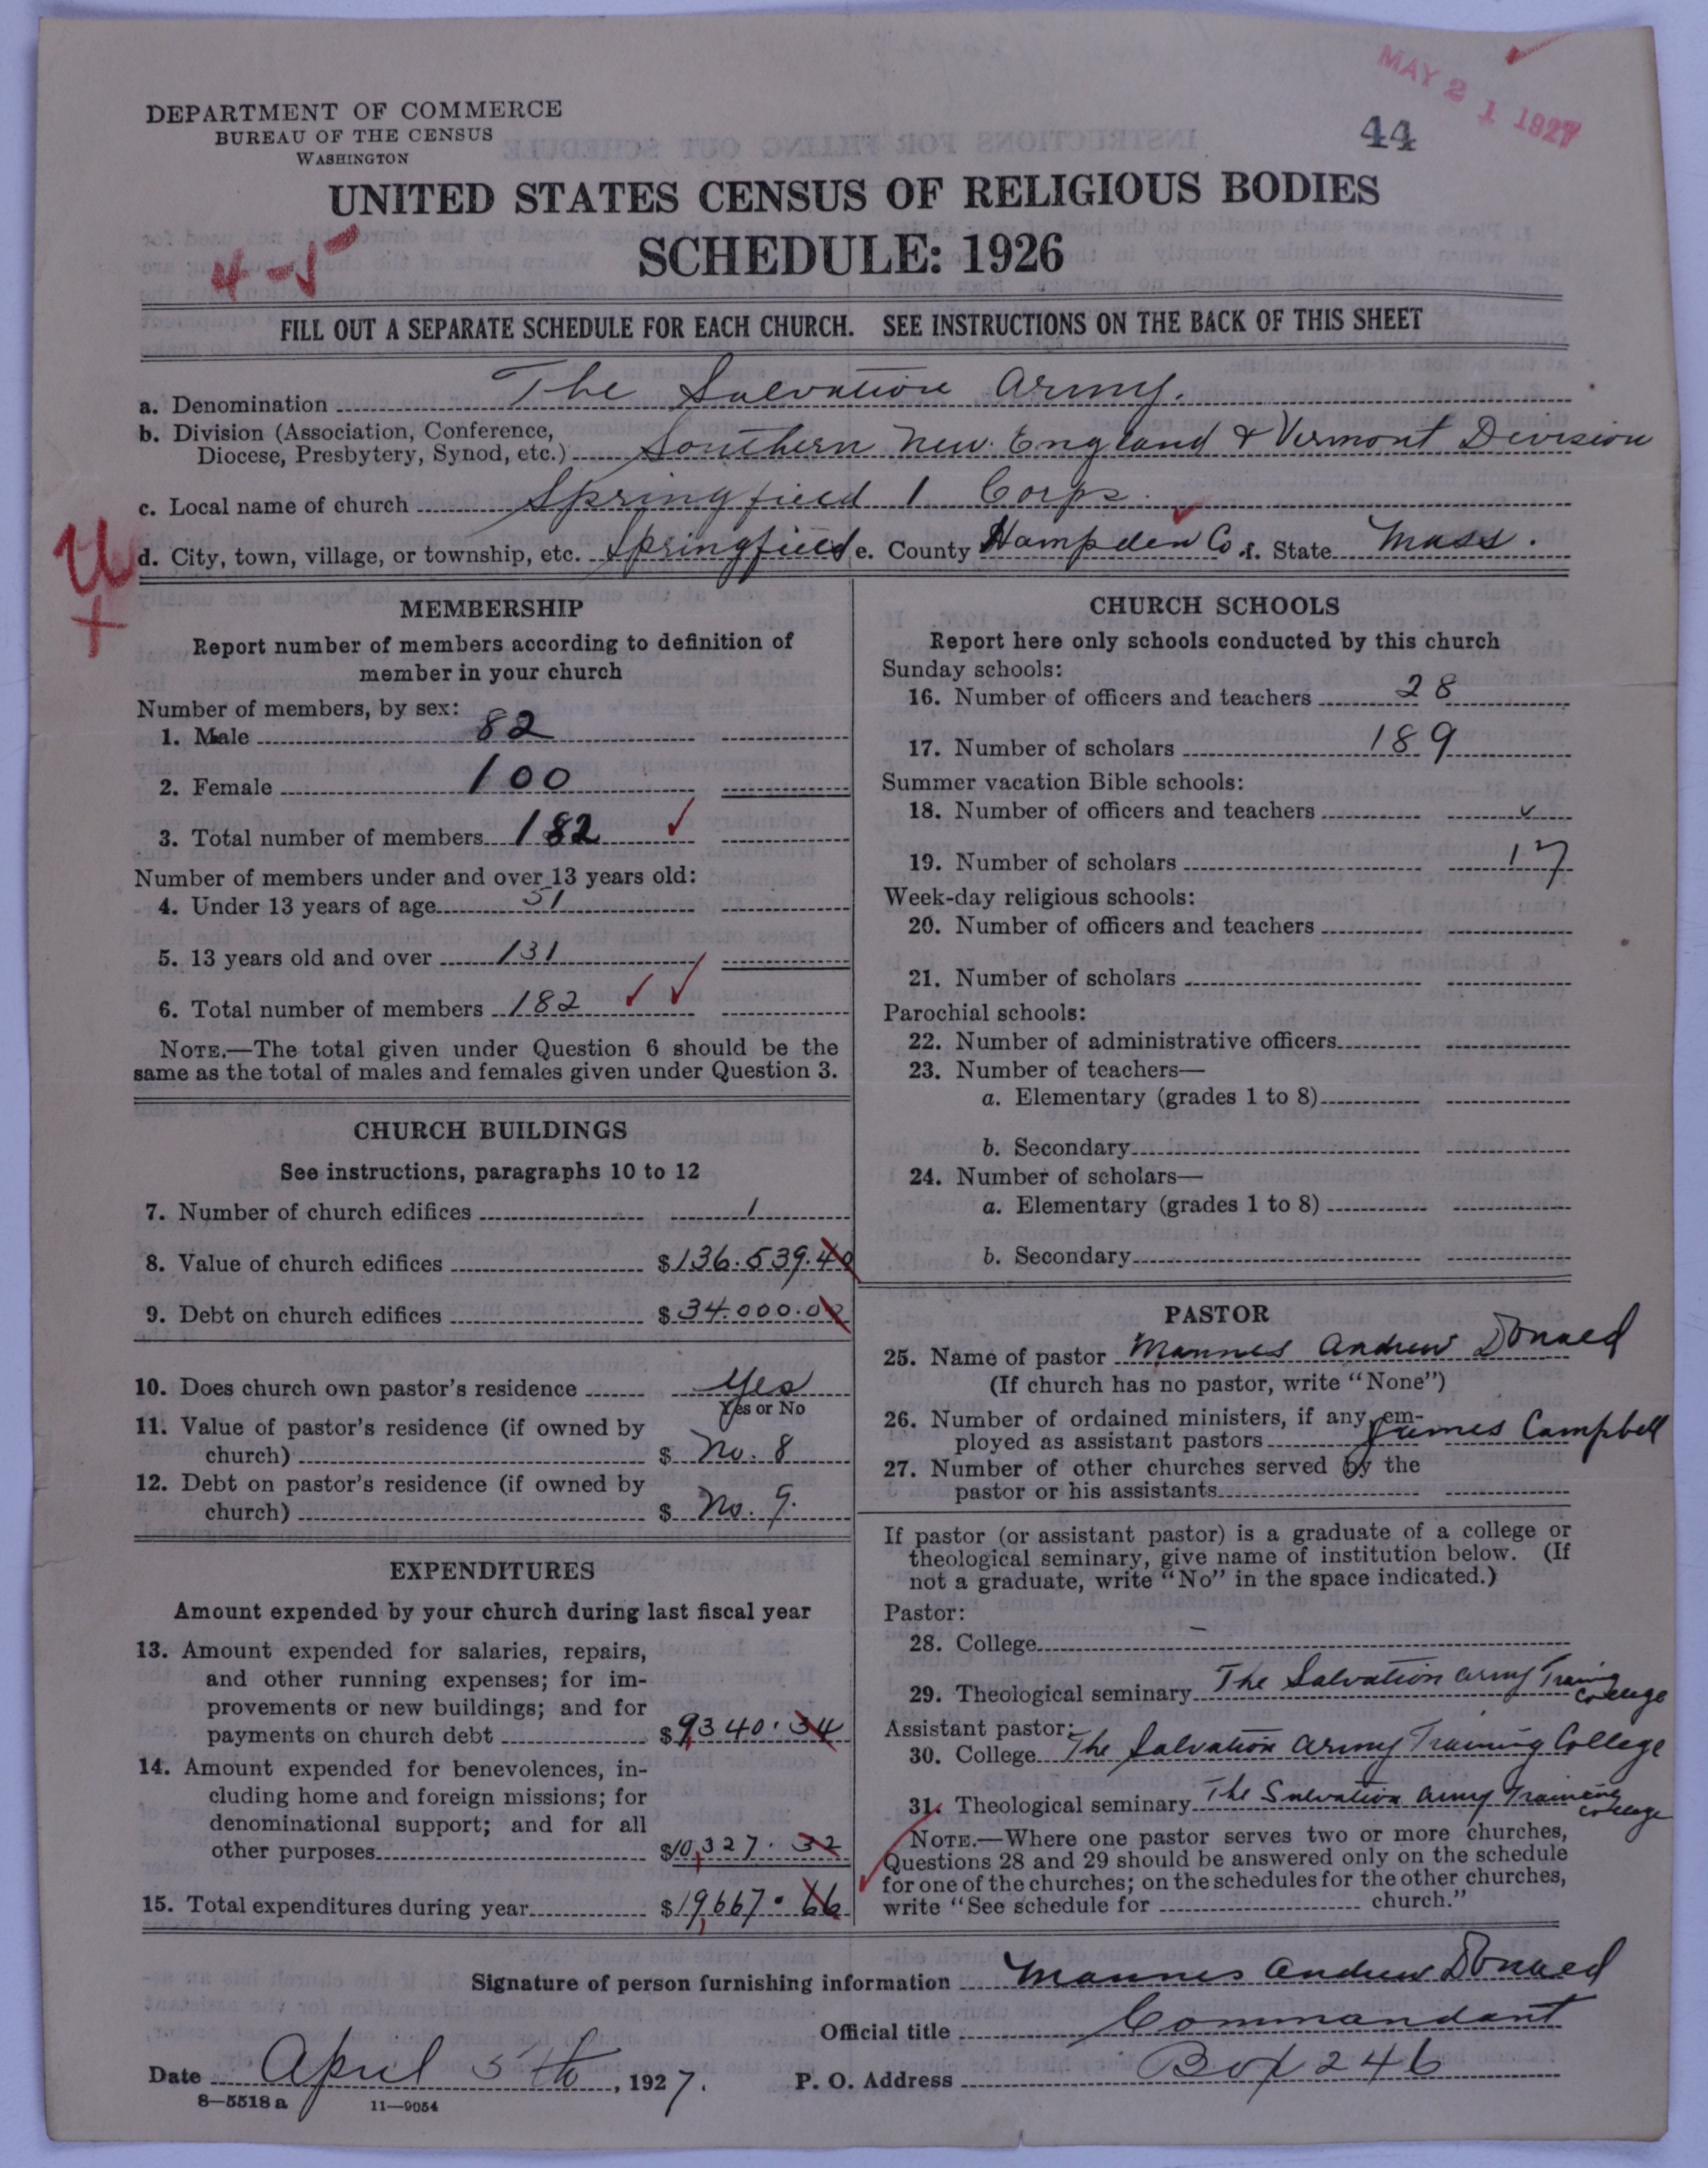 MAY 21 1927
44
DEPARTMENT OF COMMERCE
BUREAU OF THE CENSUS
WASHINGTON
UNITED STATES CENSUS OF RELIGIOUS BODIES
SCHEDULE: 1926
4-5
FILL OUT A SEPARATE SCHEDULE FOR EACH CHURCH. SEE INSTRUCTIONS ON THE BACK OF THIS SHEET
a. Denomination The Salvation Army.
b. Division (Association, Conference,
Diocese, Presbytery, Synod, etc.) Southern New England & Vermont Division
c. Local name of church Springfield 1 Corps.
d. City, town, village, or township, etc. Springfield e. County Hampden Co. f. State Mass.
MEMBERSHIP
Report number of members according to definition of
member in your church
Number of members, by sex:
1. Male 82
2. Female 100
3. Total number of members 182
Number of members under and over 13 years old:
4. Under 13 years of age 51
5. 13 years old and over 131
6. Total number of members 182
NOTE.—The total given under Question 6 should be the
same as the total of males and females given under Question 3.
CHURCH BUILDINGS
See instructions, paragraphs 10 to 12
7. Number of church edifices 1
8. Value of church edifices $136.539.40
9. Debt on church edifices $34.000.00
10. Does church own pastor's residence Yes
Yes or No
11. Value of pastor's residence (if owned by
church) $ No. 8
12. Debt on pastor's residence (if owned by
church) $ No. 9.
EXPENDITURES
Amount expended by your church during last fiscal year
13. Amount expended for salaries, repairs,
and other running expenses; for im-
provements or new buildings; and for
payments on church debt $9,340.34
14. Amount expended for benevolences, in-
cluding home and foreign missions; for
denominational support; and for all
other purposes $10,327.32
15. Total expenditures during year $19,667.66
CHURCH SCHOOLS
Report here only schools conducted by this church
Sunday schools:
16. Number of officers and teachers 28
17. Number of scholars 189
Summer vacation Bible schools:
18. Number of officers and teachers
19. Number of scholars 17
Week-day religious schools:
20. Number of officers and teachers
21. Number of scholars
Parochial schools:
22. Number of administrative officers
23. Number of teachers—
a. Elementary (grades 1 to 8)
b. Secondary
24. Number of scholars—
a. Elementary (grades 1 to 8)
b. Secondary
PASTOR
25. Name of pastor Mannes Andrew Donald
(If church has no pastor, write "None")
26. Number of ordained ministers, if any, em-
ployed as assistant pastors James Campbell
27. Number of other churches served by the
pastor or his assistants
If pastor (or assistant pastor) is a graduate of a college or
theological seminary, give name of institution below. (If
not a graduate, write "No" in the space indicated.)
Pastor:
28. College –
29. Theological seminary The Salvation Army Training College
Assistant pastor:
30. College The Salvation Army Training College
31. Theological seminary The Salvation Army Training College
NOTE.—Where one pastor serves two or more churches,
Questions 28 and 29 should be answered only on the schedule
for one of the churches; on the schedules for the other churches,
write "See schedule for church."
Signature of person furnishing information Mannes Andrew Donald
Official title Commandant
Date April 5th, 1927. P. O. Address Box 246
8—5518a 11—9054